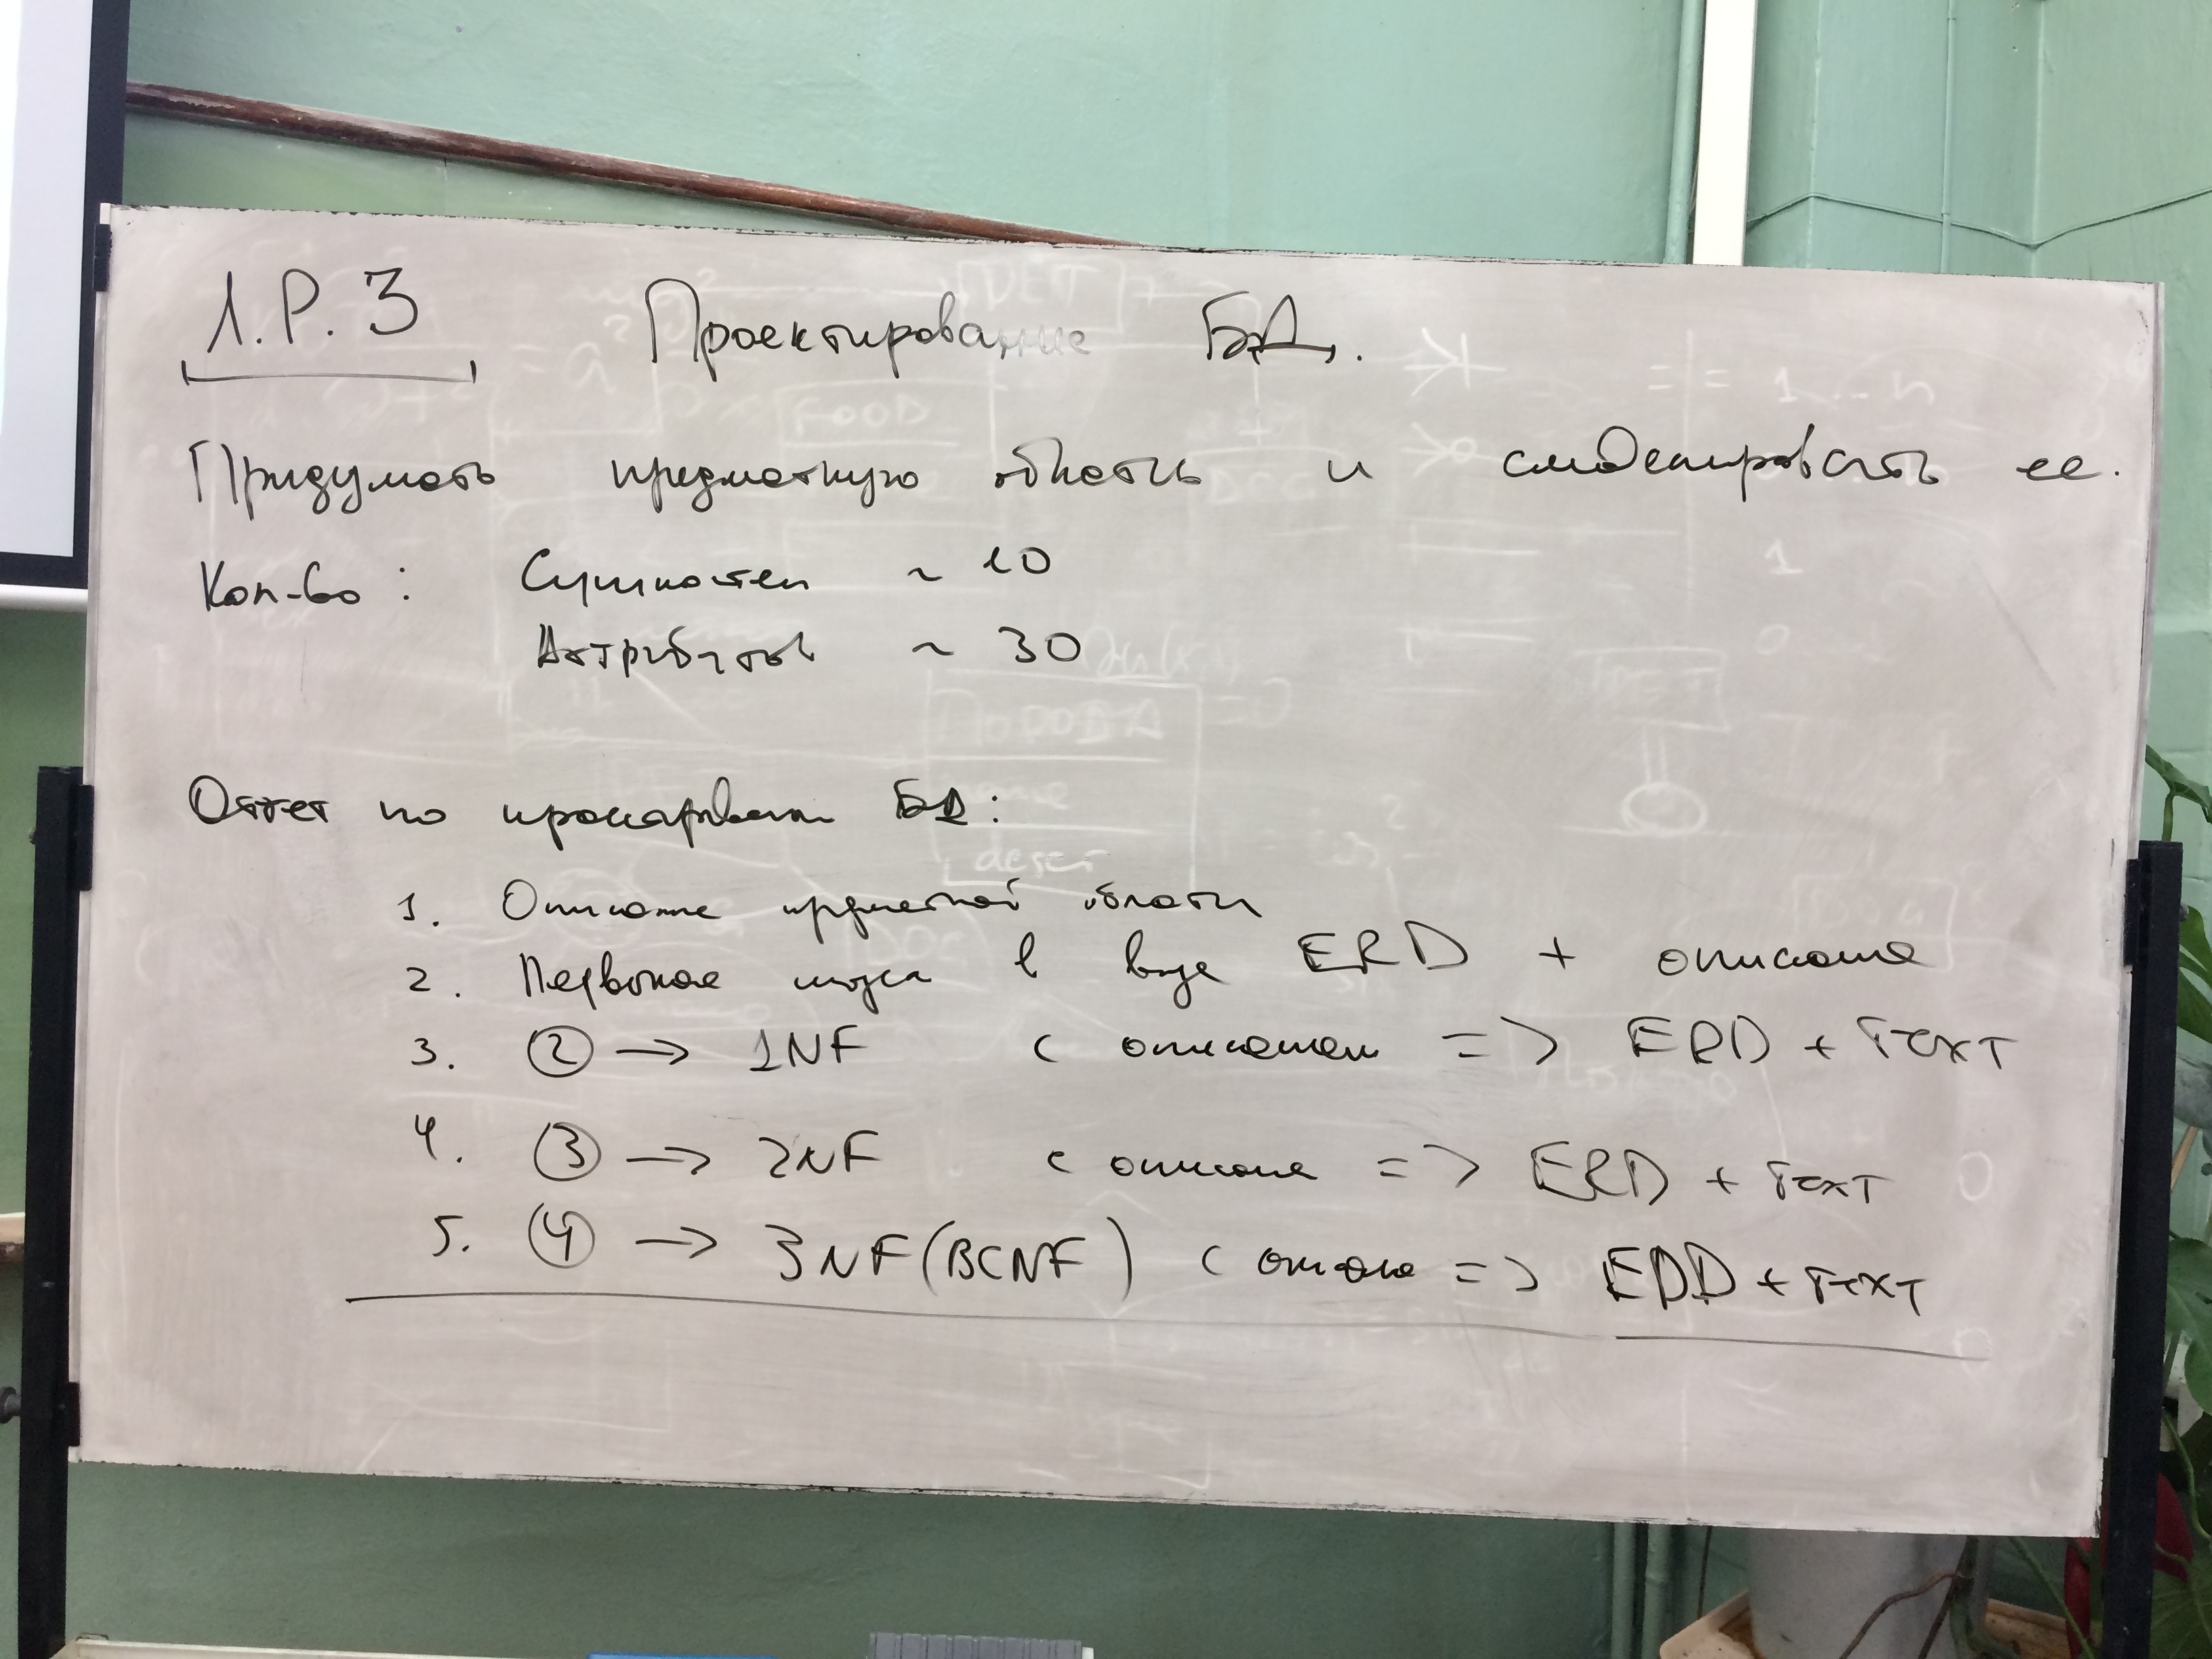 Л.Р. 3 Проектирование БД.
Придумать предметную область и смоделировать ее.
Кол-во: Сущностей ~ 10
Аттрибутов ~ 30
Отчет по проектированию БД:
1. Описание предметной области
2. Первоначальная модель в виде ERD + описание
3. ② → 1NF с описанием => ERD + Текст
4. ③ → 2NF с описание => ERD + Текст
5. ④ → 3NF (BCNF) с описание => ERD + Текст
FOOD
ПОРОДА
descr